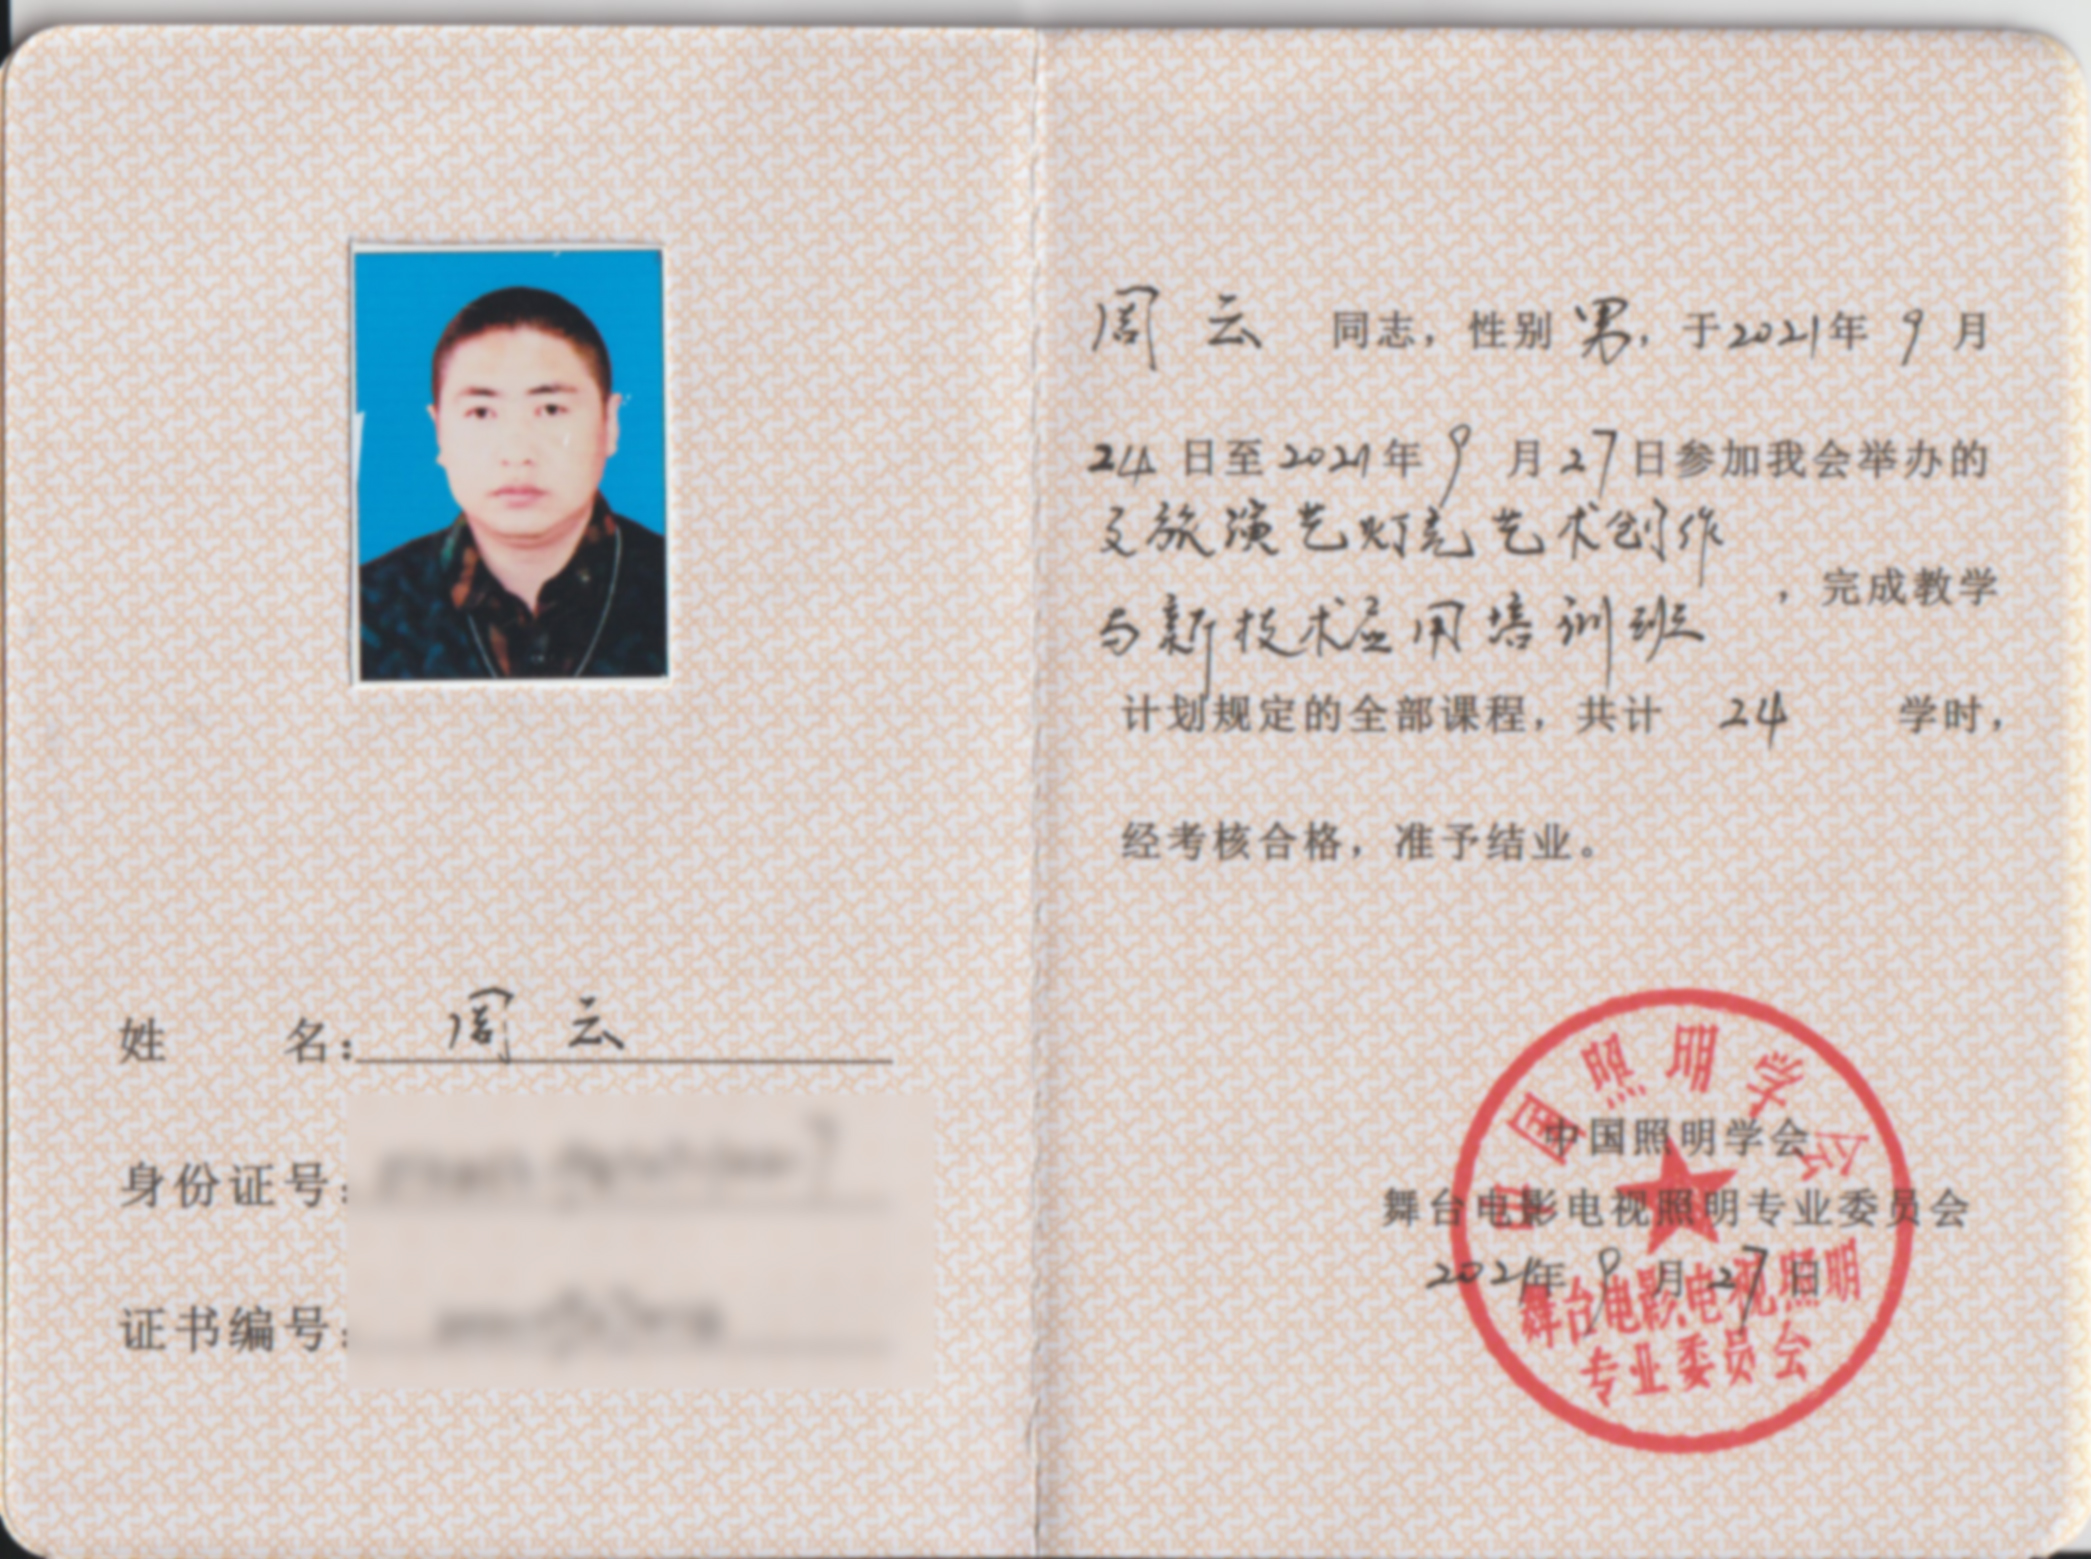 姓 名：周云
身份证号：
证书编号：
周云 同志，性别 男，于2021年 9 月
24 日至2021年 9 月 27 日参加我会举办的
文旅演艺灯光艺术创作
与新技术应用培训班
，完成教学
计划规定的全部课程，共计 24 学时，
经考核合格，准予结业。
中国照明学会
舞台电影电视照明专业委员会
2021年 9 月 27 日
中国照明学会
舞台电影电视照明
专业委员会